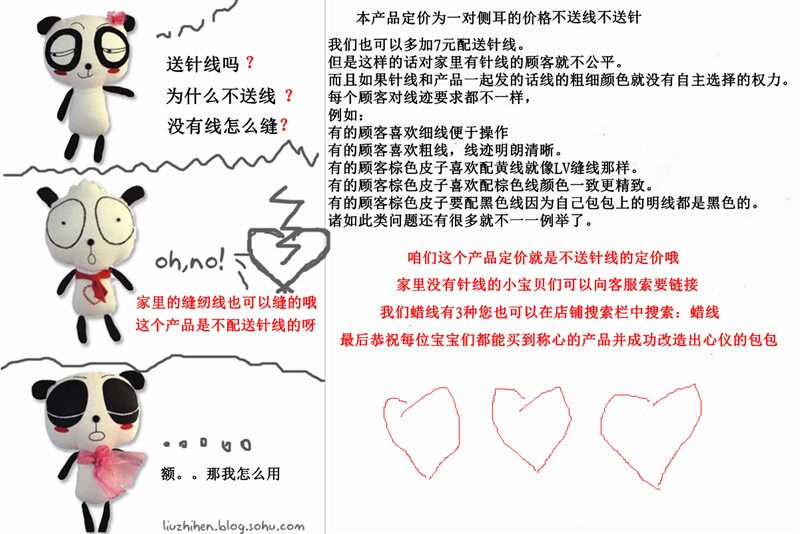 送针线吗？
为什么不送线 ？
没有线怎么缝？
oh,no!
家里的缝纫线也可以缝的哦
这个产品是不配送针线的呀
额。。那我怎么用
liuzhihen.blog.sohu.com
本产品定价为一对侧耳的价格不送线不送针
我们也可以多加7元配送针线。
但是这样的话对家里有针线的顾客就不公平。
而且如果针线和产品一起发的话线的粗细颜色就没有自主选择的权力。
每个顾客对线迹要求都不一样，
例如：
有的顾客喜欢细线便于操作
有的顾客喜欢粗线，线迹明朗清晰。
有的顾客棕色皮子喜欢配黄线就像LV缝线那样。
有的顾客棕色皮子喜欢配棕色线颜色一致更精致。
有的顾客棕色皮子要配黑色线因为自己包包上的明线都是黑色的。
诸如此类问题还有很多就不一一例举了。
咱们这个产品定价就是不送针线的定价哦
家里没有针线的小宝贝们可以向客服索要链接
我们蜡线有3种您也可以在店铺搜索栏中搜索：蜡线
最后恭祝每位宝宝们都能买到称心的产品并成功改造出心仪的包包